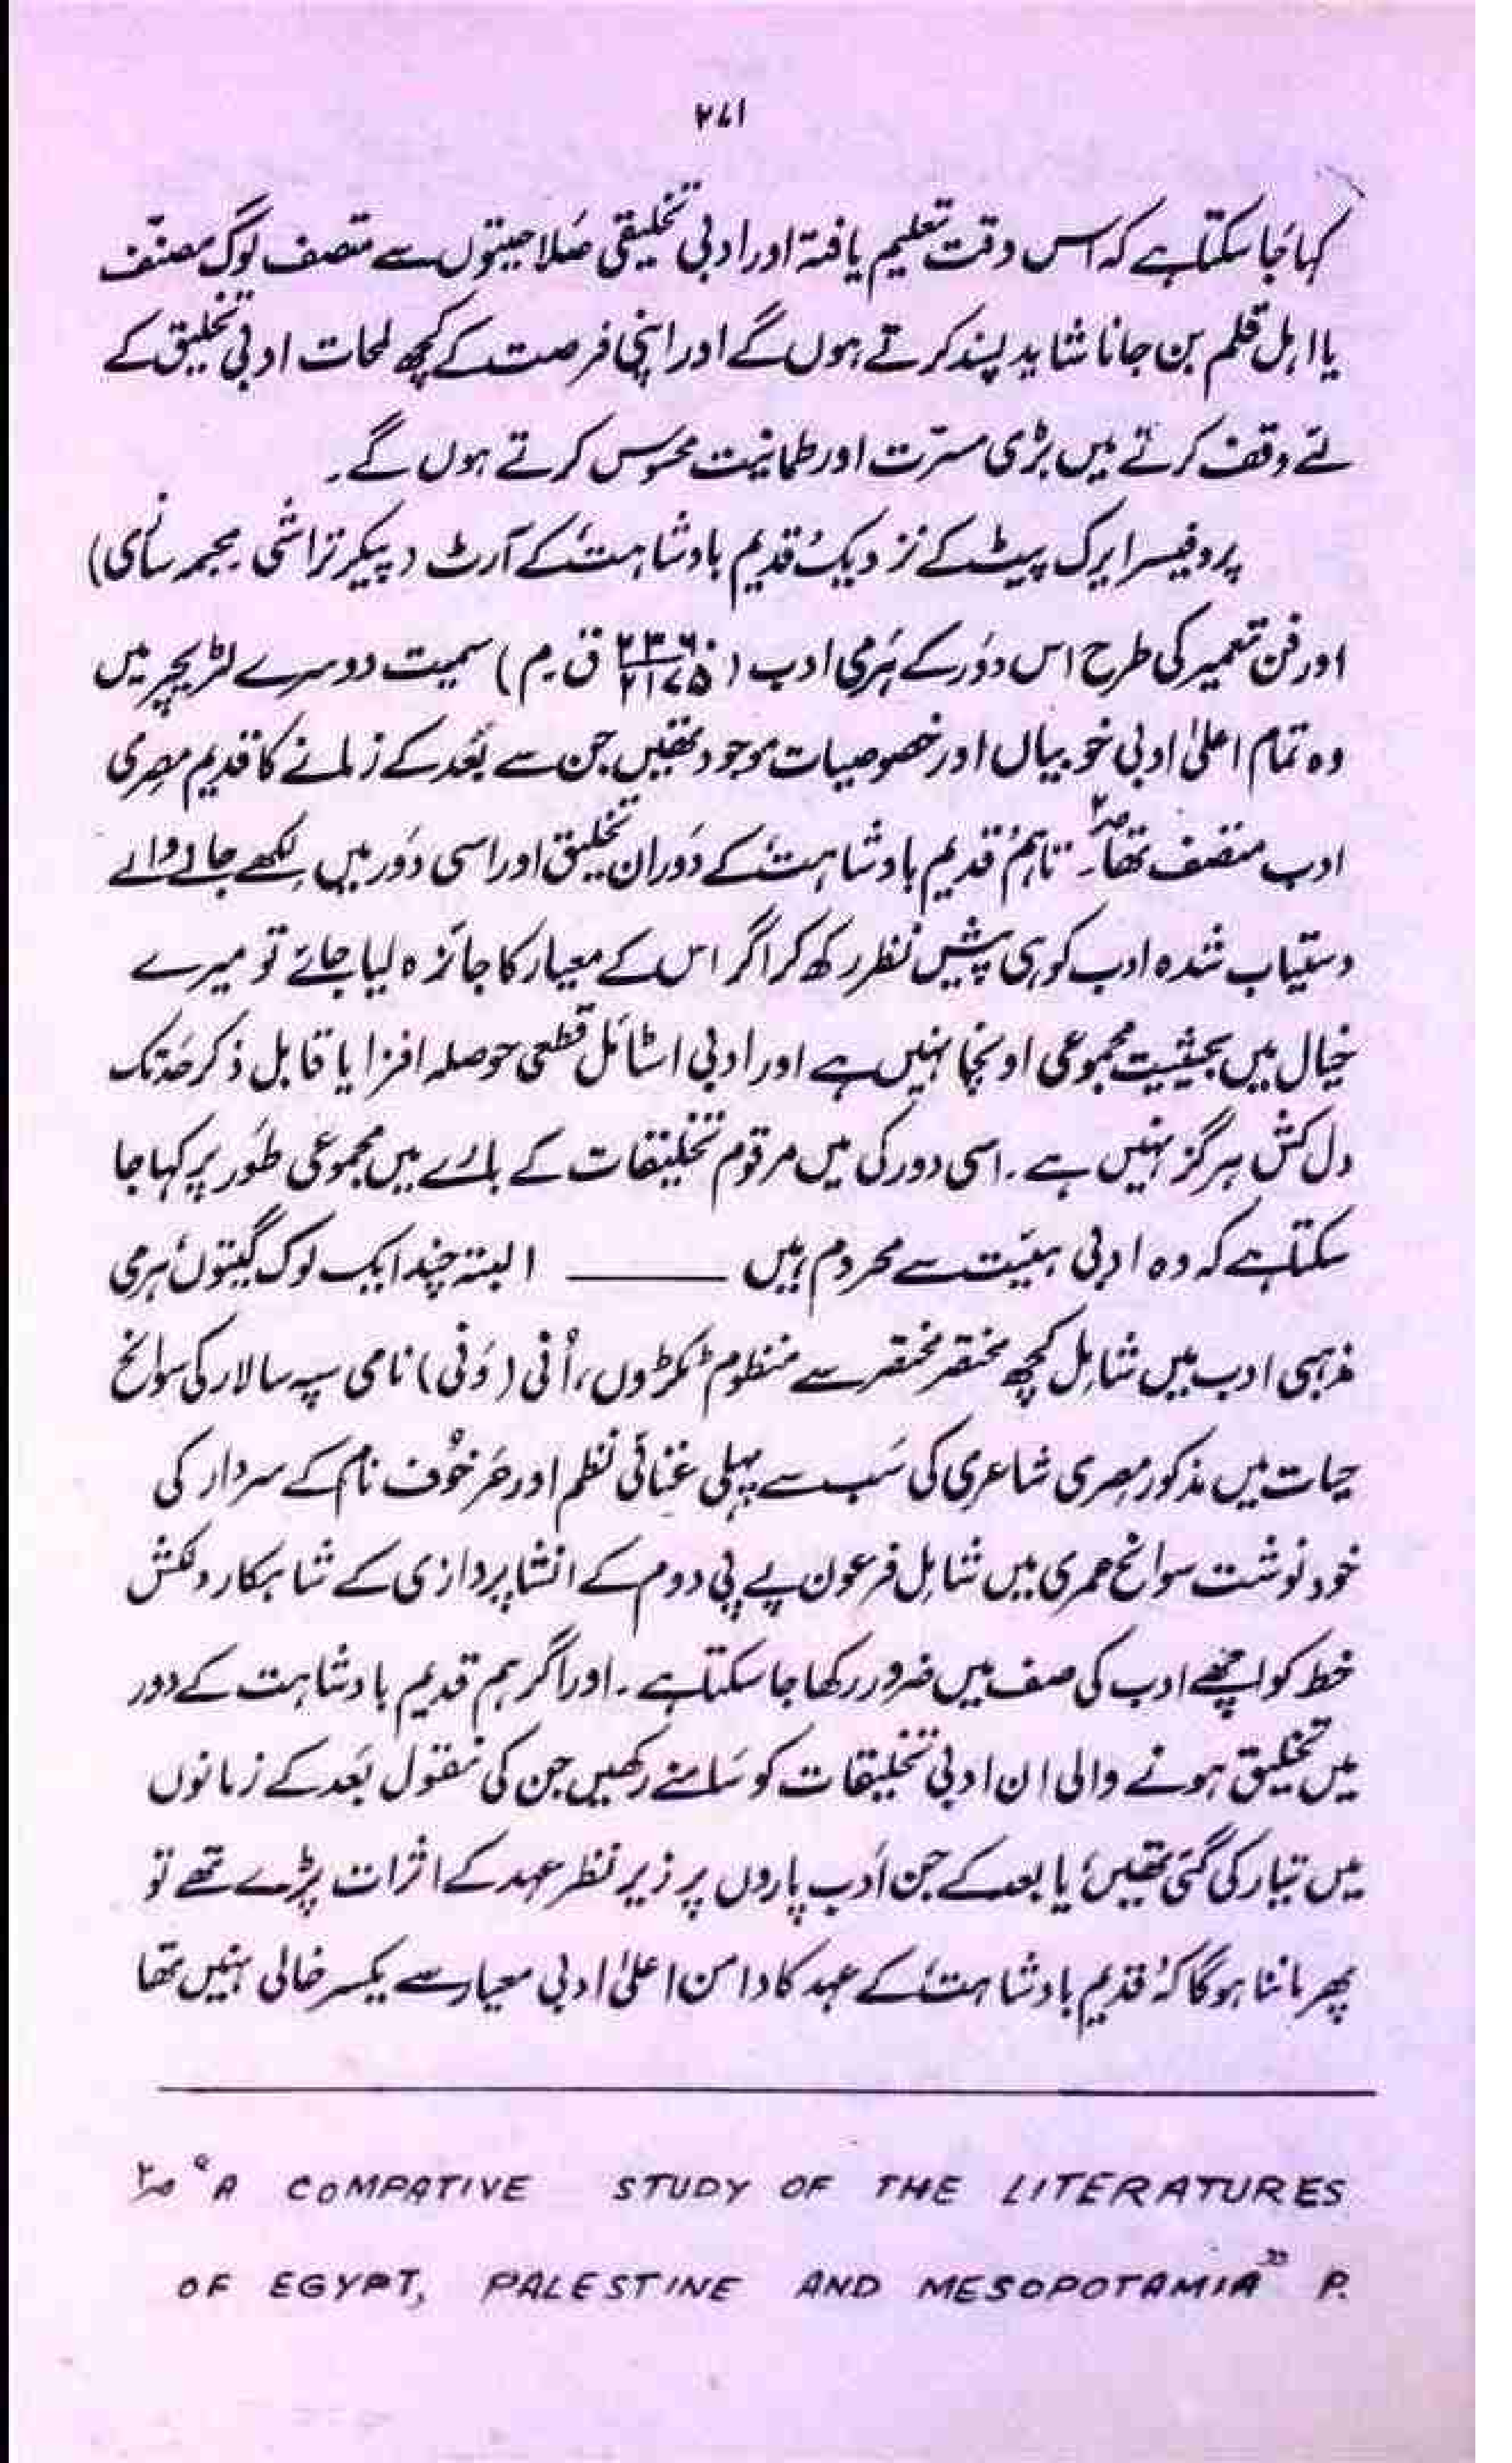 ۲۷۱
کہا جا سکتا ہے کہ اس وقت تعلیم یافتہ اور ادبی تخلیقی صلاحیتوں سے متصف لوگ مصنّف
یا اہل قلم بن جانا شاید پسند کرتے ہوں گے اور اپنی فرصت کے کچھ لمحات ادبی تخلیق کے
لئے وقف کرتے میں بڑی مسرّت اور طمانیت محسوس کرتے ہوں گے۔
پروفیسر ایرک پیٹ کے نزدیک قدیم بادشاہت کے آرٹ (پیکر تراشی۔ مجسمہ سازی)
اور فن تعمیر کی طرح اس دَور کے ہَرمی ادب (۲۳۶۰/۲۱۷۵ ق۔م) سمیت دوسرے لٹریچر میں
وہ تمام اعلیٰ ادبی خوبیاں اور خصوصیات موجود تھیں جن سے بَعد کے زمانے کا قدیم مصری
ادب متصف تھا۔ ۲؂ تاہم قدیم بادشاہت کے دَوران تخلیق اور اسی دَور میں لکھے جانے والے
دستیاب شدہ ادب کو ہی پیش نظر رکھ کر اگر اس کے معیار کا جائزہ لیا جائے تو میرے
خیال میں بحیثیت مجموعی اونچا نہیں ہے اور ادبی اسٹائل قطعی حوصلہ افزا یا قابل ذکر حَد تک
دل کش ہرگز نہیں ہے۔ اسی دور کی میں مرقوم تخلیقات کے بارے میں مجموعی طَور پر کہا جا
سکتا ہے کہ وہ ادبی ہیئت سے محروم ہیں ــــــــ البتہ چند ایک لوک گیتوں، ہرمی
مذہبی ادب میں شامل کچھ مختصر مختصر سے منظوم ٹکڑوں، اُنی (وَنی) نامی سپہ سالار کی سوانح
حیات میں مذکور مصری شاعری کی سَب سے پہلی غنائی نظم اور حَرخُوف نام کے سردار کی
خود نوشت سوانح عمری میں شامل فرعون پے پی دوم کے انشا پردازی کے شاہکار دلکش
خط کو اچھے ادب کی صف میں ضرور رکھا جا سکتا ہے۔ اور اگر ہم قدیم بادشاہت کے دور
میں تخلیق ہونے والی ان ادبی تخلیقات کو سَامنے رکھیں جن کی نقول بَعد کے زمانوں
میں تیار کی گئی تھیں، یا بعد کے جن اَدب پاروں پر زیر نظر عہد کے اثرات پڑے تھے تو
پھر ماننا ہوگا کہ قدیم بادشاہت کے عہد کا دامن اعلیٰ ادبی معیار سے یکسر خالی نہیں تھا
۲؂ "A COMPATIVE STUDY OF THE LITERATURES
OF EGYPT, PALESTINE AND MESOPOTAMIA" P.